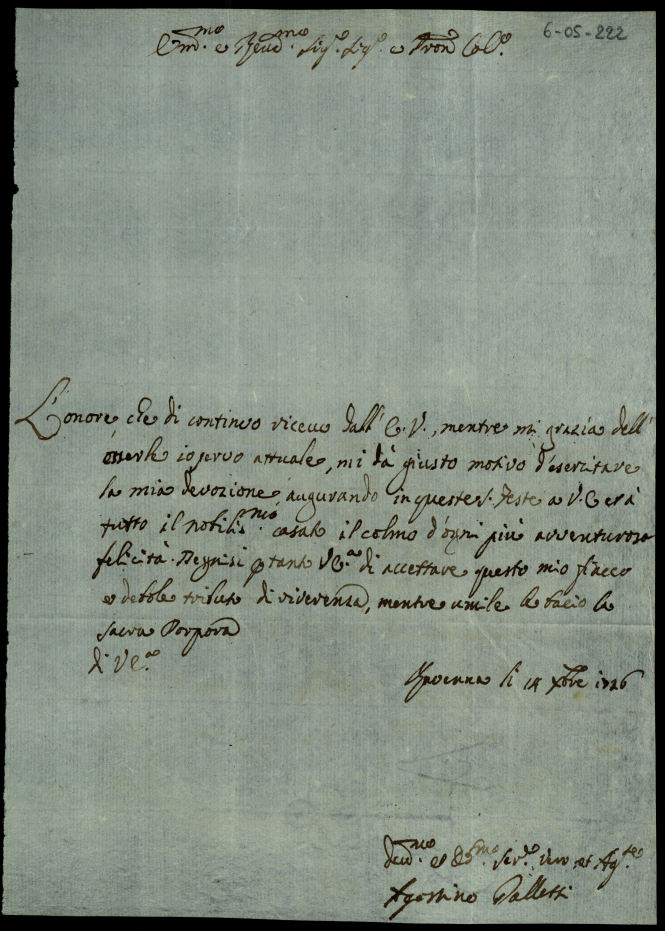 6-05-222
Em.mo e Revd.mo Sig.r Sig.r e Pron Col.o
L'onore che di continuo ricevo dall' E.V., mentre mi grazia dell'
esserle io servo attuale, mi dà giusto motivo d'esercitare
la mia devozione, augurando in queste S. Feste a V. E e à
tutto il nobilis.mo casato il colmo d'ogni più avventurosa
felicità. Degnisi ptanto VE.a di accettare questo mio fiacco
e debole tributo di riverenza, mentre umile le bacio la
sacra Porpora
di VE.a
Ravenna li 14 Xbre 1726
Agostino